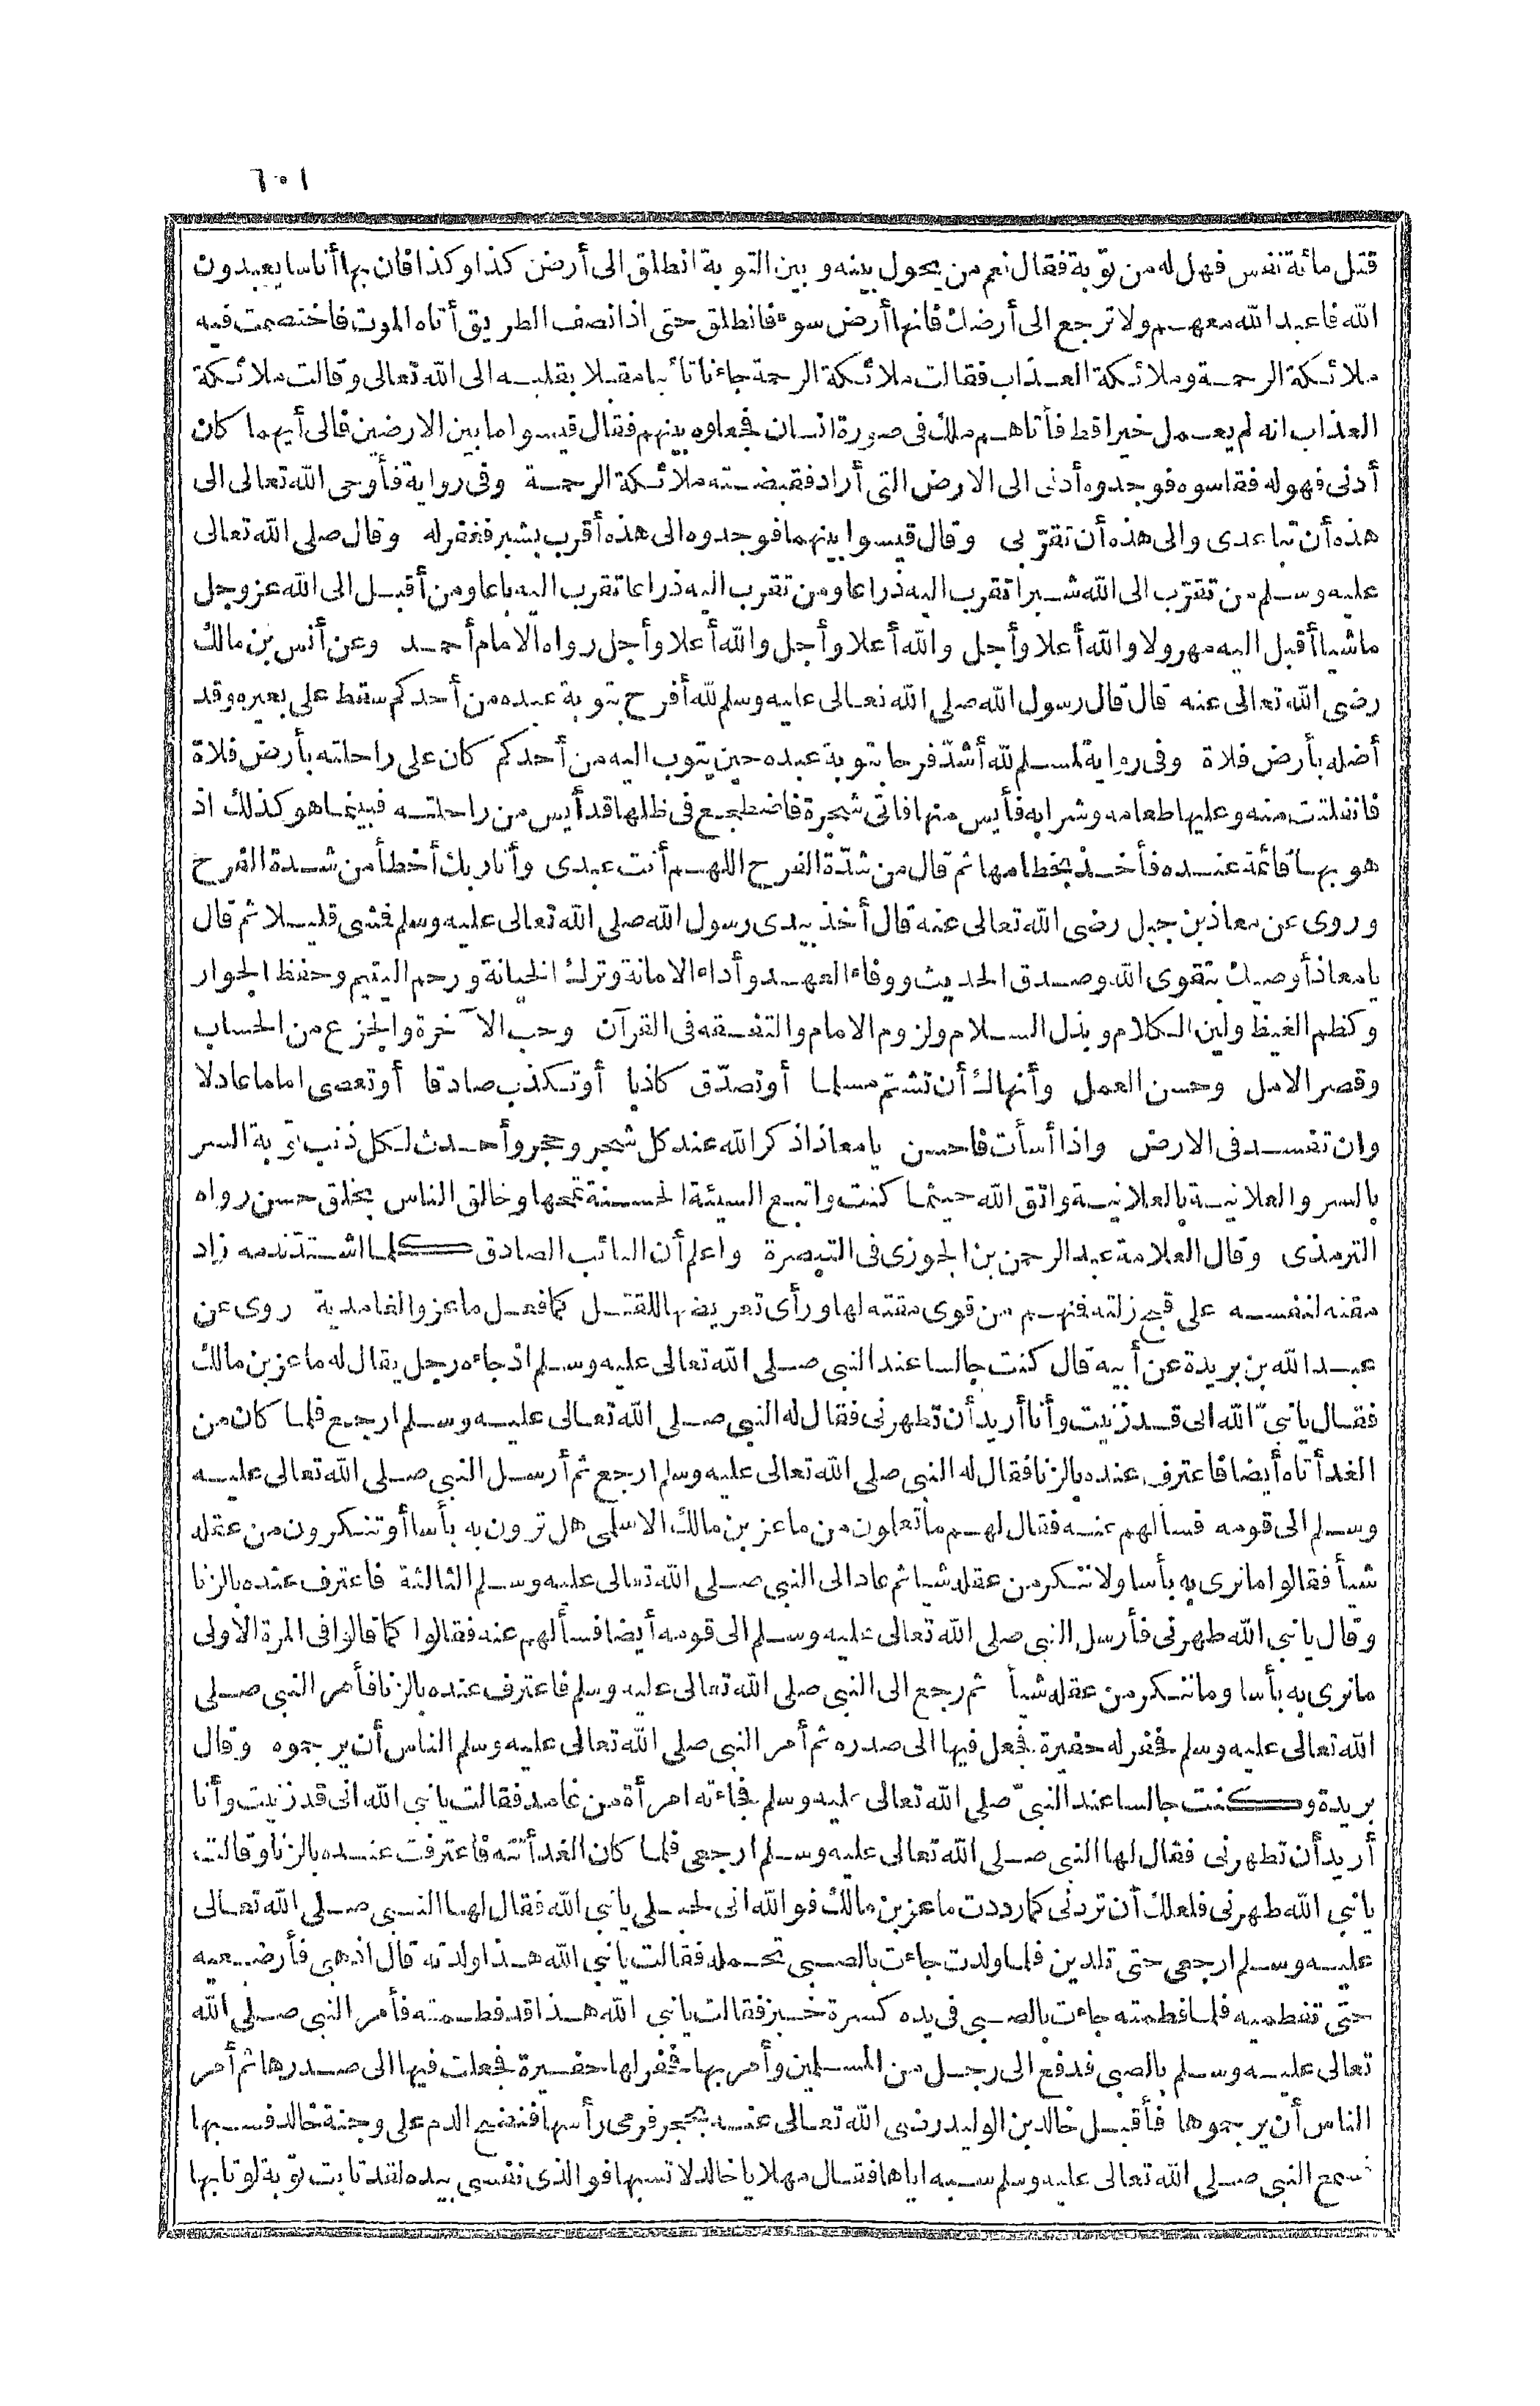 ١٠٦
قتل مائة نفس فهل له من توبة فقال نعم من يحول بينه وبين التوبة انطلق الى أرض كذا وكذا فان بها أناسا يعبدون
الله فاعبد الله معهم ولا ترجع الى أرضك فانها أرض سوء فانطلق حتى اذا نصف الطريق أتاه الموت فاختصمت فيه
ملائكة الرحمة وملائكة العذاب فقالت ملائكة الرحمة جاءنا تائبا مقبلا بقلبه الى الله تعالى وقالت ملائكة
العذاب انه لم يعمل خيرا قط فأتاهم ملك في صورة انسان فجعلوه بينهم فقال قيسوا ما بين الارضين فالى أيهما كان
أدنى فهو له فقاسوه فوجدوه أدنى الى الارض التي أراد فقبضته ملائكة الرحمة وفي رواية فأوحى الله تعالى الى
هذه أن تباعدى والى هذه أن تقرّبى وقال قيسوا بينهما فوجدوه الى هذه أقرب بشبر فغفر له وقال صلى الله تعالى
عليه وسلم من تقرّب الى الله شبرا تقرب اليه ذراعا ومن تقرب اليه ذراعا تقرب اليه باعا ومن أقبل الى الله عز وجل
ماشيا أقبل اليه مهرولا والله أعلا وأجل والله أعلا وأجل والله أعلا وأجل رواه الامام أحمد وعن أنس بن مالك
رضى الله تعالى عنه قال قال رسول الله صلى الله تعالى عليه وسلم لله أفرح بتوبة عبده من أحدكم سقط على بعيره وقد
أضله بأرض فلاة وفى رواية لمسلم لله أشدّ فرحا بتوبة عبده حين يتوب اليه من أحدكم كان على راحلته بأرض فلاة
فانفلتت منه وعليها طعامه وشرابه فأيس منها فاتى شجرة فاضطجع فى ظلها قد أيس من راحلته فبينما هو كذلك اذ
هو بها قائمة عنده فأخذ بخطامها ثم قال من شدّة الفرح اللهم أنت عبدى وأنا ربك أخطأ من شدة الفرح
وروى عن معاذ بن جبل رضى الله تعالى عنه قال أخذ بيدى رسول الله صلى الله تعالى عليه وسلم فمشى قليلا ثم قال
يا معاذ أوصيك بتقوى الله وصدق الحديث ووفاء العهد وأداء الامانة وترك الخيانة ورحم اليتيم وحفظ الجوار
وكظم الغيظ ولين الكلام وبذل السلام ولزوم الامام والتفقه فى القرآن وحب الآخرة والجزع من الحساب
وقصر الامل وحسن العمل وأنهاك أن تشتم مسلما أو تصدّق كاذبا أو تكذب صادقا أو تعصى اماما عادلا
وان تفسد فى الارض واذا أسأت فاحسن يا معاذ اذكر الله عند كل شجر وحجر وأحدث لكل ذنب توبة السر
بالسر والعلانية بالعلانية واتق الله حيثما كنت واتبع السيئة الحسنة تمحها وخالق الناس بخلق حسن رواه
الترمذى وقال العلامة عبد الرحمن بن الجوزى فى التبصرة واعلم أن التائب الصادق كلما اشتدّ ندمه زاد
مقته لنفسه على قبح زلته فمنهم من قوى مقته لها ورأى تعريضها للقتل كما فعل ماعز والغامدية روى عن
عبد الله بن بريدة عن أبيه قال كنت جالسا عند النبى صلى الله تعالى عليه وسلم اذ جاءه رجل يقال له ماعز بن مالك
فقال يا نبىّ الله انى قد زنيت وأنا أريد أن تطهرنى فقال له النبى صلى الله تعالى عليه وسلم ارجع فلما كان من
الغد أتاه أيضا فاعترف عنده بالزنا فقال له النبى صلى الله تعالى عليه وسلم ارجع ثم أرسل النبى صلى الله تعالى عليه
وسلم الى قومه فسألهم عنه فقال لهم ما تعلون من ماعز بن مالك الاسلمى هل ترون به بأسا أو تنكرون من عقله
شيأ فقالوا ما نرى به بأسا ولا ننكر من عقله شيا ثم عاد الى النبى صلى الله تعالى عليه وسلم الثالثة فاعترف عنده بالزنا
وقال يا نبى الله طهرنى فأرسل النبى صلى الله تعالى عليه وسلم الى قومه أيضا فسألهم عنه فقالوا كما قالوا فى المرة الاولى
ما نرى به بأسا وما ننكر من عقله شيأ ثم رجع الى النبى صلى الله تعالى عليه وسلم فاعترف عنده بالزنا فأمر النبى صلى
الله تعالى عليه وسلم فحفر له حفيرة فجعل فيها الى صدره ثم أمر النبى صلى الله تعالى عليه وسلم الناس أن يرجموه وقال
بريدة وكنت جالسا عند النبىّ صلى الله تعالى عليه وسلم فجاءته امرأة من غامد فقالت يا نبى الله انى قد زنيت وأنا
أريد أن تطهرنى فقال لها النبى صلى الله تعالى عليه وسلم ارجعى فلما كان الغد أتته فاعترفت عنده بالزنا وقالت
يا نبى الله طهرنى فلعلك أن تردنى كما رددت ماعز بن مالك فو الله انى لحبلى يا نبى الله فقال لها النبى صلى الله تعالى
عليه وسلم ارجعى حتى تلدين فلما ولدت جاءت بالصبى تحمله فقالت يا نبى الله هذا ولدته قال اذهبى فأرضعيه
حتى تفطميه فلما فطمته جاءت بالصبى فى يده كسرة خبز فقالت يا نبى الله هذا قد فطمته فأمر النبى صلى الله
تعالى عليه وسلم بالصبى فدفع الى رجل من المسلمين وأمر بها فحفر لها حفيرة فجعلت فيها الى صدرها ثم أمر
الناس أن يرجموها فأقبل خالد بن الوليد رضى الله تعالى عنه بحجر فرمى رأسها فنضح الدم على وجنة خالد فسبها
فسمع النبى صلى الله تعالى عليه وسلم سبه اياها فقال مهلا يا خالد لا تسبها فو الذى نفسى بيده لقد تابت توبة لو تابها